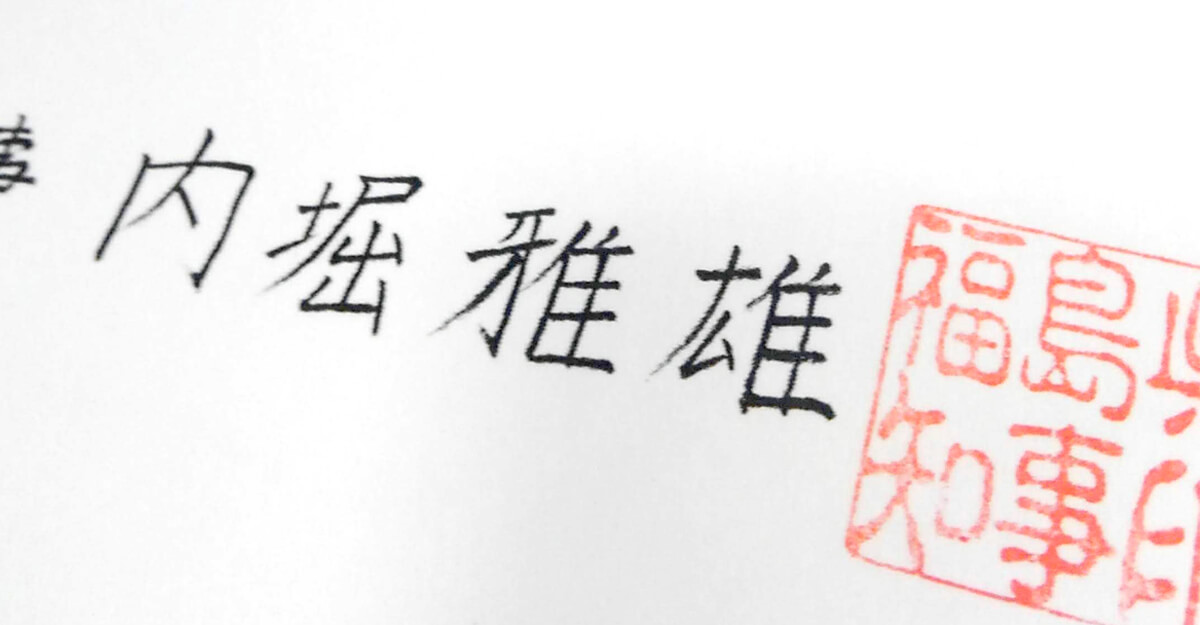 内堀雅雄
福島県
知事印